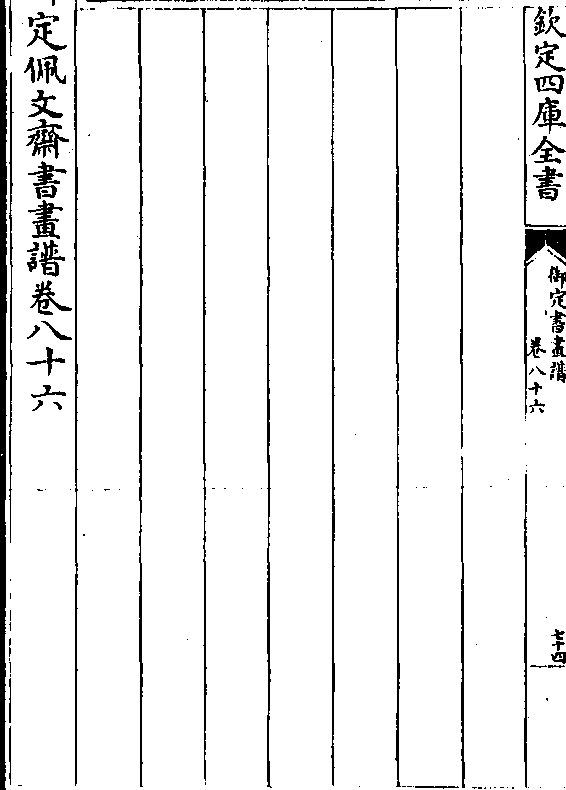 欽定四庫全書
御定書畫譜
卷八十六
七十四
定佩文齋書畫譜卷八十六